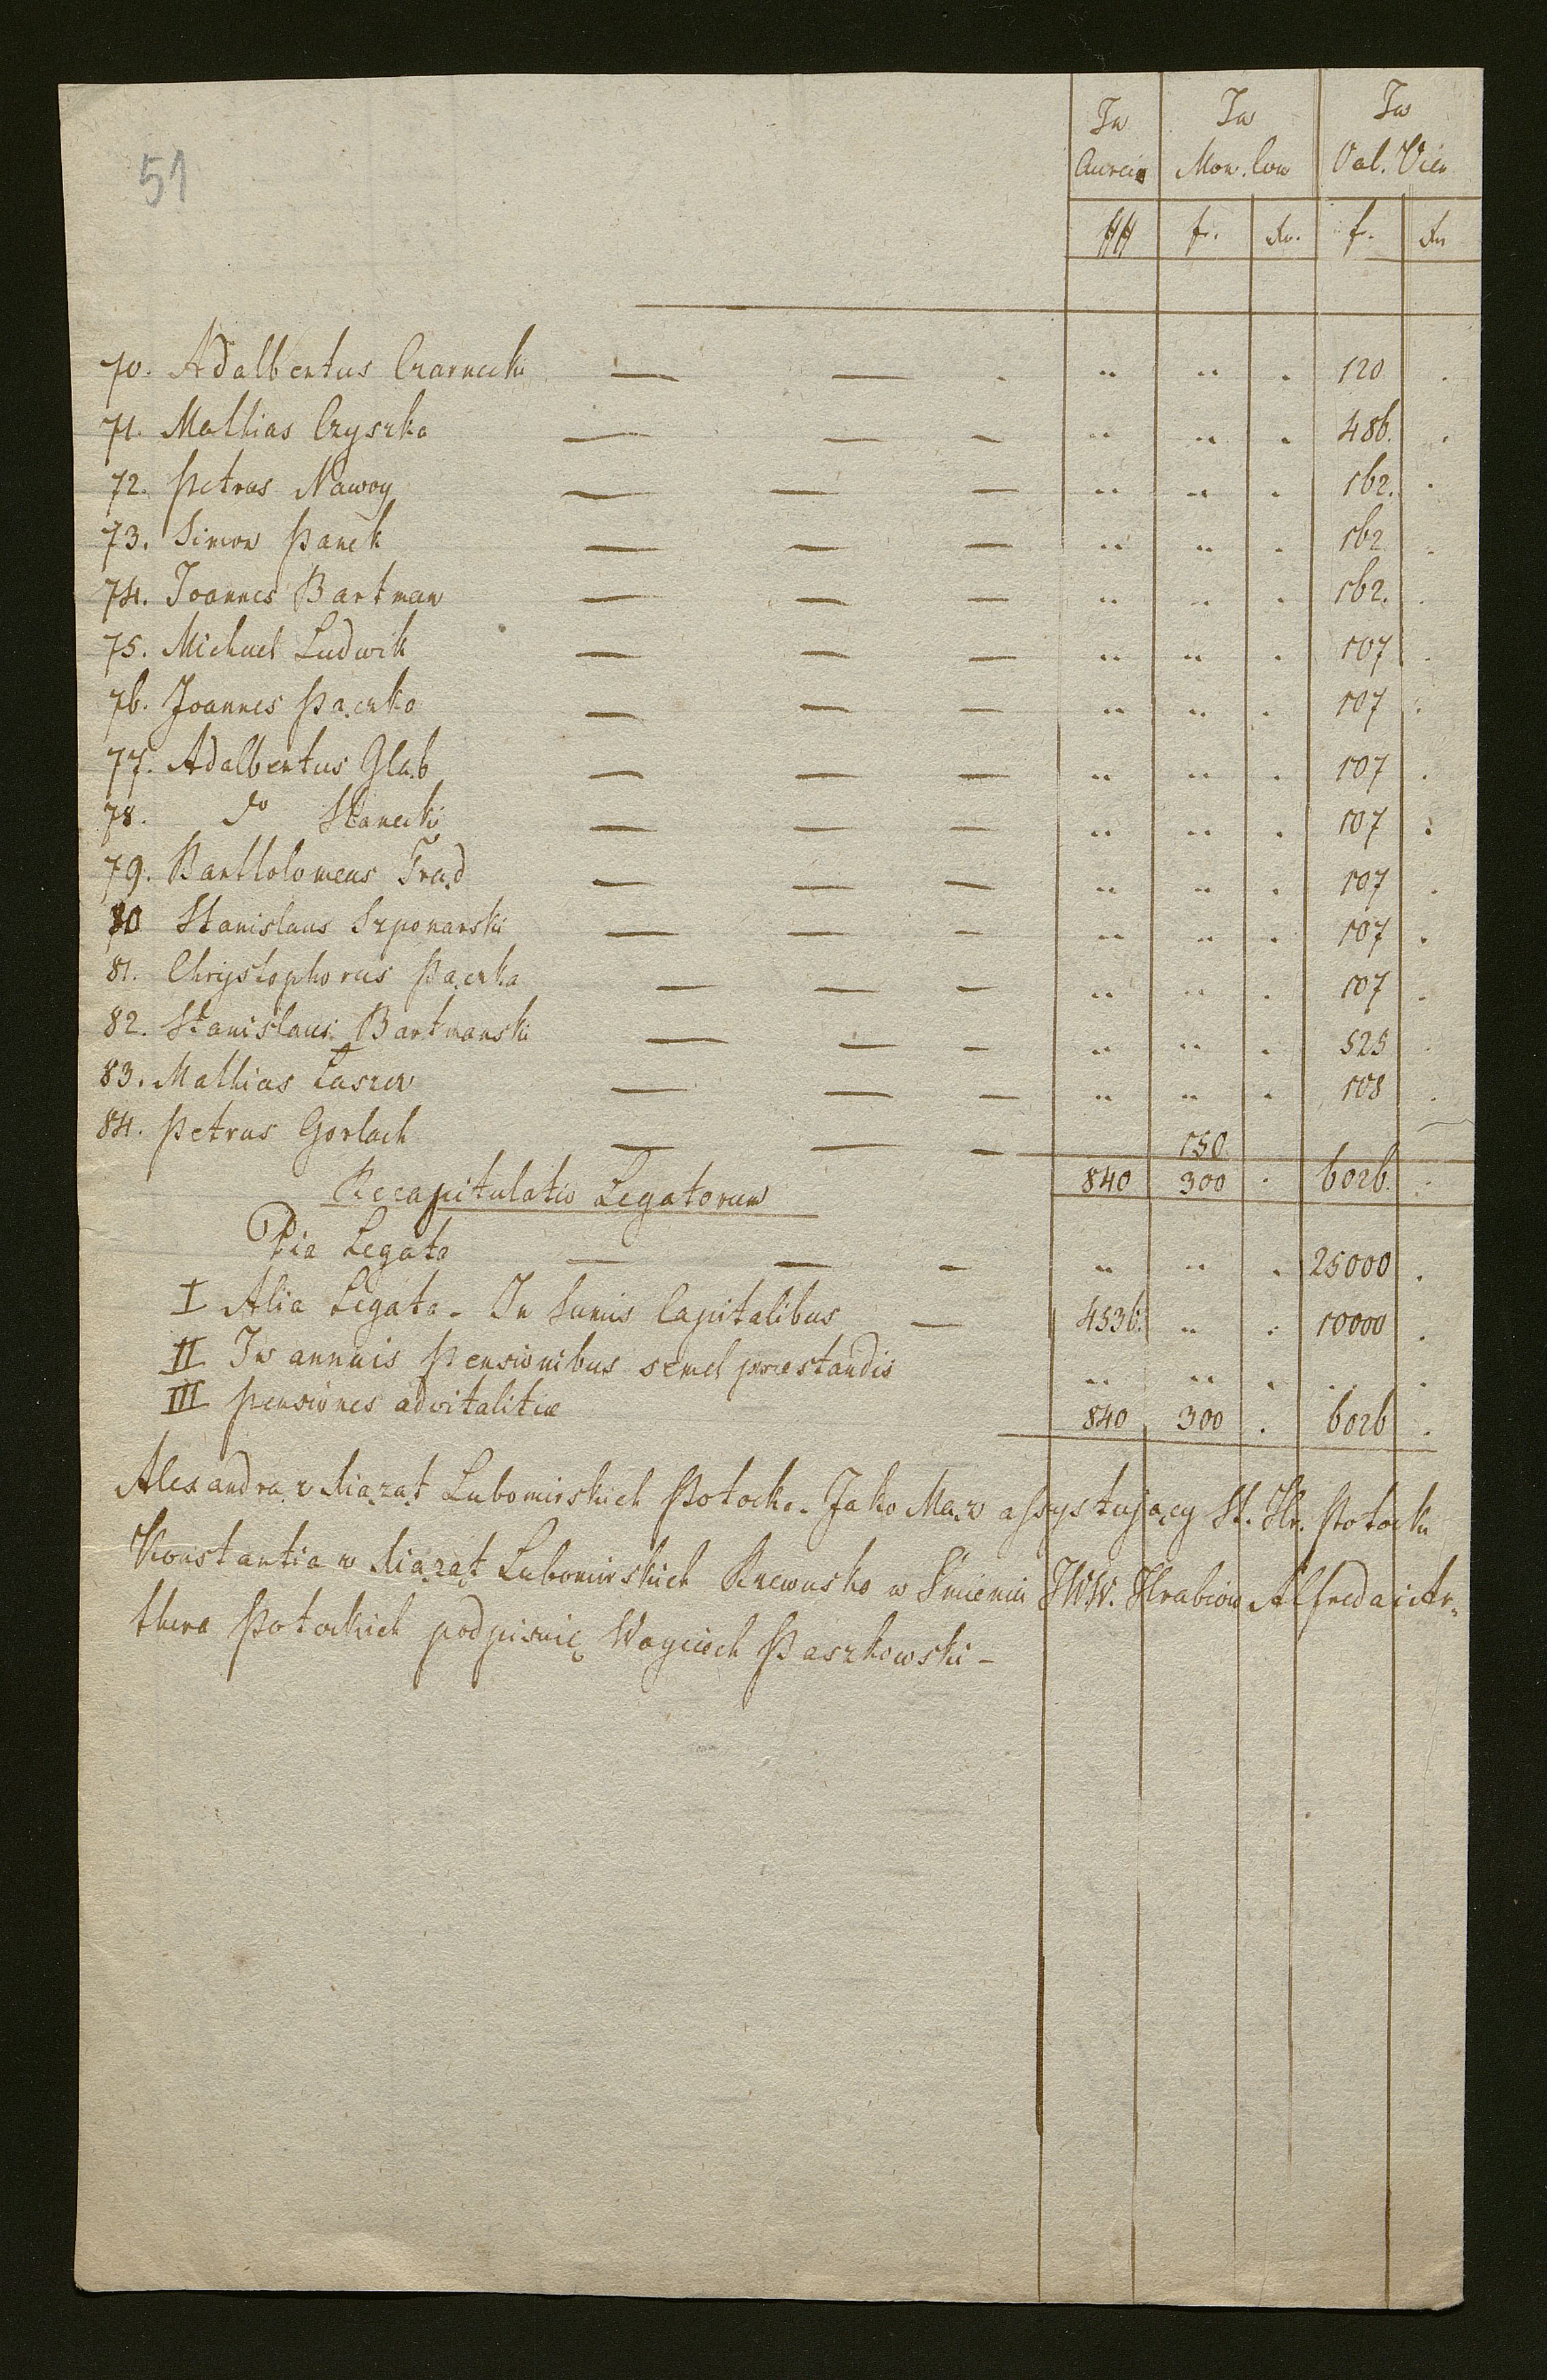 51
In In In
Aureis Mon. Con Val. Vien
## fr. Xr. fr. Xr
70. Adalbertus Czarnecki — — . " " . 120 .
71. Mathias Czyszka — — — " " . 486. .
72. Petrus Nawoy — — — " " . 162. .
73. Simon Panek — — — " " . 162 .
74. Joannes Bartman — — — " " . 162. .
75. Michael Ludwik — — — " " . 107 .
76. Joannes Pączka — — — " " . 107 .
77. Adalbertus Głąb — — — " " . 107 .
78. do Stanecki — — — " " . 107 .
79. Bartholomeus Frąd — — — " " . 107 .
80 Stanislaus Szponarski — — — " " . 107 .
81. Chrystophorus Pączka — — — " " . 107 .
82. Stanislaus Bartmanski — — — " " . 525 .
83. Mathias Łaszew — — — " " . 108 .
84. Petrus Gorlach — — — 150
Recapitulatio Legatorum 840 300 . 6026. .
Pia Legata — — — " " . 25000 .
I Alia Legata - In Sumis Capitalibus — 4536. " . 10000 .
II In annuis Pensionibus semel præstandis " " . . .
III Pensiones advitalitiæ 840 300 . 6026 .
Alexandra z Xiążąt Lubomirskich Potocka - Jako Mąż assystujący St. Hr. Potocki
Konstantia z Xiążąt Lubomirskich Rzewuska w Imieniu JWW. Hrabiow Alfreda i Ar-
thura Potockich podpisuię Woyciech Paszkowski -